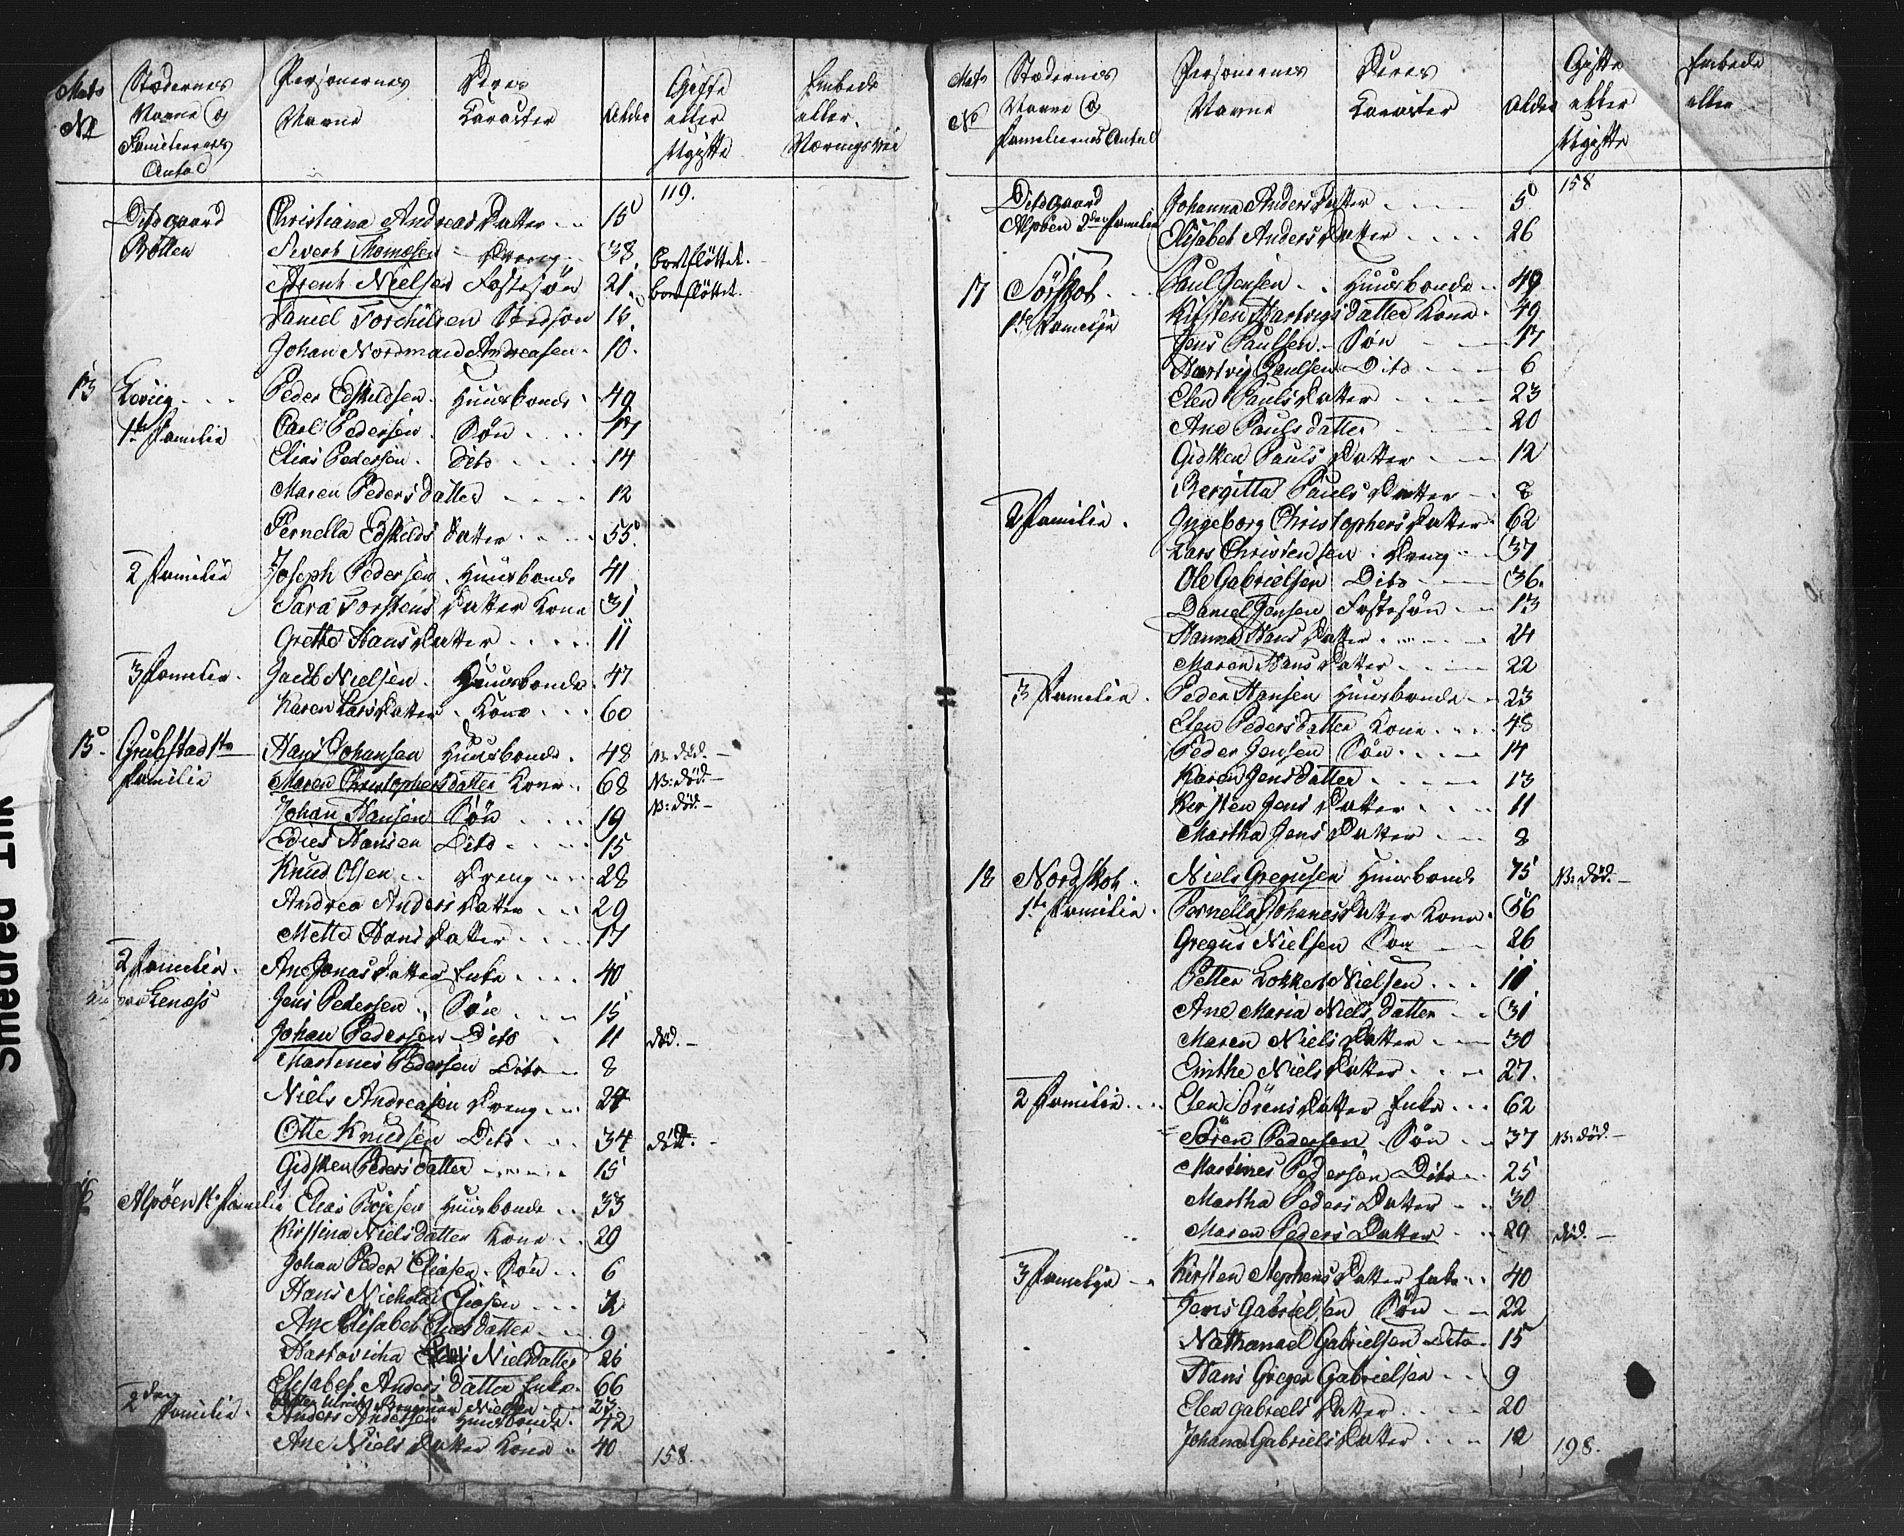 Stædernes Personernes Deres Gifte Embede
Navne og Navne Karakter Alder eller eller
Familiernes Ugifte Næringsvei
Antal
119.
Christiana Andreas Datter 15
Sivert Thomesen Dreng 38 bortfløttet.
Arent Nielsen Fostesøn 21 bortfløttet.
Daniel Torchilsen 16
Johan Nordman Andreasen 10
13 Peder Edskildsen Huusbonde 49
1te Familie Carl Pedersen Søn 17
Elias Pedersen Dito 14
Maren Peders datter 12
Pernella Edskilds Datter 55
2 Familie Joseph Pedersen Huusbonde 41
Sara Torstens Datter Kone 31
Grethe Hans Datter 11
3 Familie Jacob Nielsen Huusbonde 47
Karen Lars Datter Kone 60
15 Grubstad 1te Hans Johansen Huusbonde 48 N: død.
Familie Maren Christophers datter Kone 68 N: død.
Johan Hansen Søn 19 N: død.
Hansen Dito 15
Knud Olsen Dreng 28
Andrea Anders Datter 29
Mette Hans Datter 17
2 Familie Ane Jonas Datter Enke 40
Jens Pedersen Søn 15
Johan Pedersen Dito 11 død.
Martines Pedersen Dito 8
Niels Andreasen Dreng 24
Otte Knudsen Dito 34 død.
Gidsken Peders datter 15
16 Alpøen 1te Familie Elias Huusbonde 33
Kirstina Niels datter Kone 29
Johan Peder Eliasen Søn 6
Hans Nicholai Eliasen
Ane Elisabet Elias datter 9
Hartvicha Niels datter
Elisabet Anders datter Enke 66
2den Familie Anders Andersen Huusbonde 42
Ane Niels Datter Kone 40 158.
Mats Stædernes Personernes Deres Gifte Embede
No Navne og Navne Karakter Alder eller eller
Familiernes Antal Ugifte
158
Johanna Anders Datter 5
Alpøen 2den Familie Elisabet Anders Datter 26
17 Sørskot Paul Jensen Huusbonde 49
1te Familie Kirsten Hartvigs datter Kone 49
Jens Paulsen Søn 17
Hartvig Paulsen Dito 6
Elen Pauls Datter 23
Ane Pauls datter 20
Gidsken Pauls Datter 12
Bergitta Pauls Datter 8
2 Familie Ingeborg Christophers Datter 62
Lars Christensen Dreng 37
Ole Gabrielsen Dito 36
Daniel Jensen Fostesøn 13
Hanna Hans Datter 24
Maren Hans Datter 22
3 Familie Peder Hansen Huusbonde 23
Elen Peders datter Kone 48
Peder Jensen Søn 14
Karen Jens datter 13
Kirsten Jens Datter 11
Martha Jens Datter 8
18 Nordskot Niels Gregusen Huusbonde 75 N: død.
1te Familie Pernella Johanes Datter Kone 56
Gregus Nielsen Søn 26
Petter Lokkert Nielsen 11
Ane Maria Niels datter 31
Maren Niels Datter 30
Niels Datter 27
2 Familie Elen Sørens Datter Enke 62
Søren Pedersen Søn 37 N: død.
Martines Pedersen Dito 25
Martha Peders Datter 30
Maren Peders Datter 29 død.
3 Familie Kirsten Stephens Datter Enke 40
Jens Gabrielsen Søn 22
Nathanael Gabrielsen Dito 15
Hans Greger Gabrielsen 9
Elen Gabriels Datter 20
Johana Gabriels Datter 12 198.
Smedred Ink